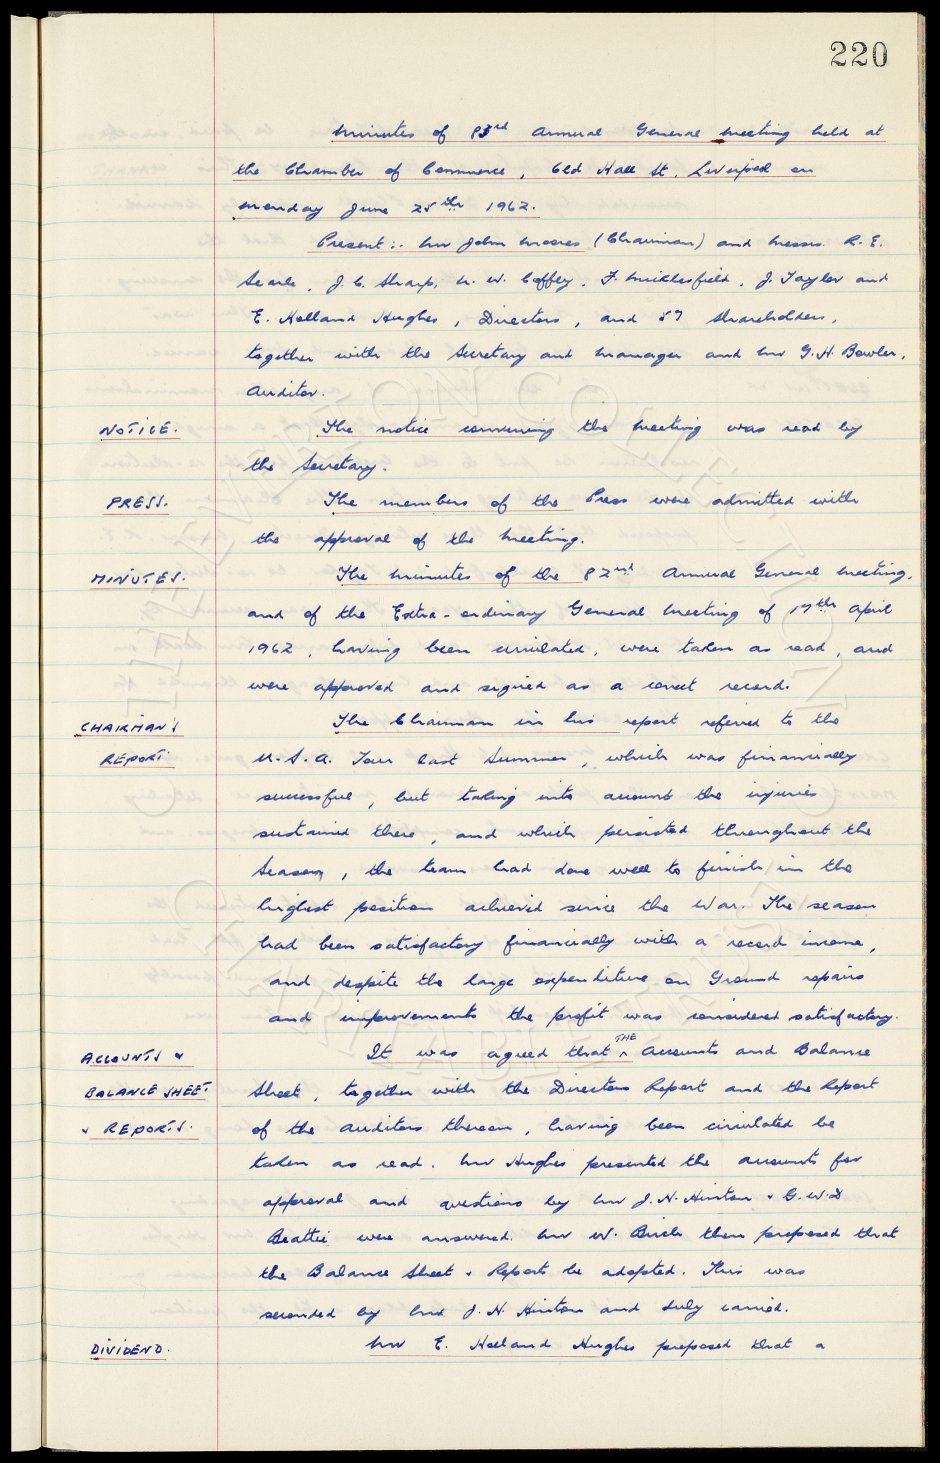 220
Minutes of 83rd Annual General Meeting held at
the Chamber of Commerce, Old Hall St. Liverpool on
Monday June 25th 1962.
Present:- Mr John Moores (Chairman) and Messrs. R. E.
Searle, J. C. Sharp, N. W. Coffey, F. Micklesfield, J. Taylor and
E. Holland Hughes, Directors, and 57 Shareholders,
together with the Secretary and Manager and Mr G. H. Bowler,
Auditor.
NOTICE. The notice convening the Meeting was read by
the Secretary.
PRESS. The members of the Press were admitted with
the approval of the Meeting.
MINUTES. The Minutes of the 82nd Annual General Meeting,
and of the Extra-ordinary General Meeting of 17th April
1962, having been circulated, were taken as read, and
were approved and signed as a correct record.
CHAIRMAN'S The Chairman in his report referred to the
REPORT U.S.A. Tour last Summer, which was financially
successful, but taking into account the injuries
sustained there, and which persisted throughout the
Season, the team had done well to finish in the
highest position achieved since the War. The season
had been satisfactory financially with a record income,
and despite the large expenditure on Ground repairs
and improvements the profit was considered satisfactory.
ACCOUNTS & It was agreed that THE Accounts and Balance
BALANCE SHEET Sheet, together with the Directors Report and the Report
& REPORTS. of the Auditors thereon, having been circulated be
taken as read. Mr Hughes presented the accounts for
approval and questions by Mr J. N. Hinton & G. W. D
Beattie were answered. Mr W. Birch then proposed that
the Balance Sheet & Reports be adopted. This was
seconded by Mr J. N. Hinton and duly carried.
DIVIDEND. Mr E. Holland Hughes proposed that a